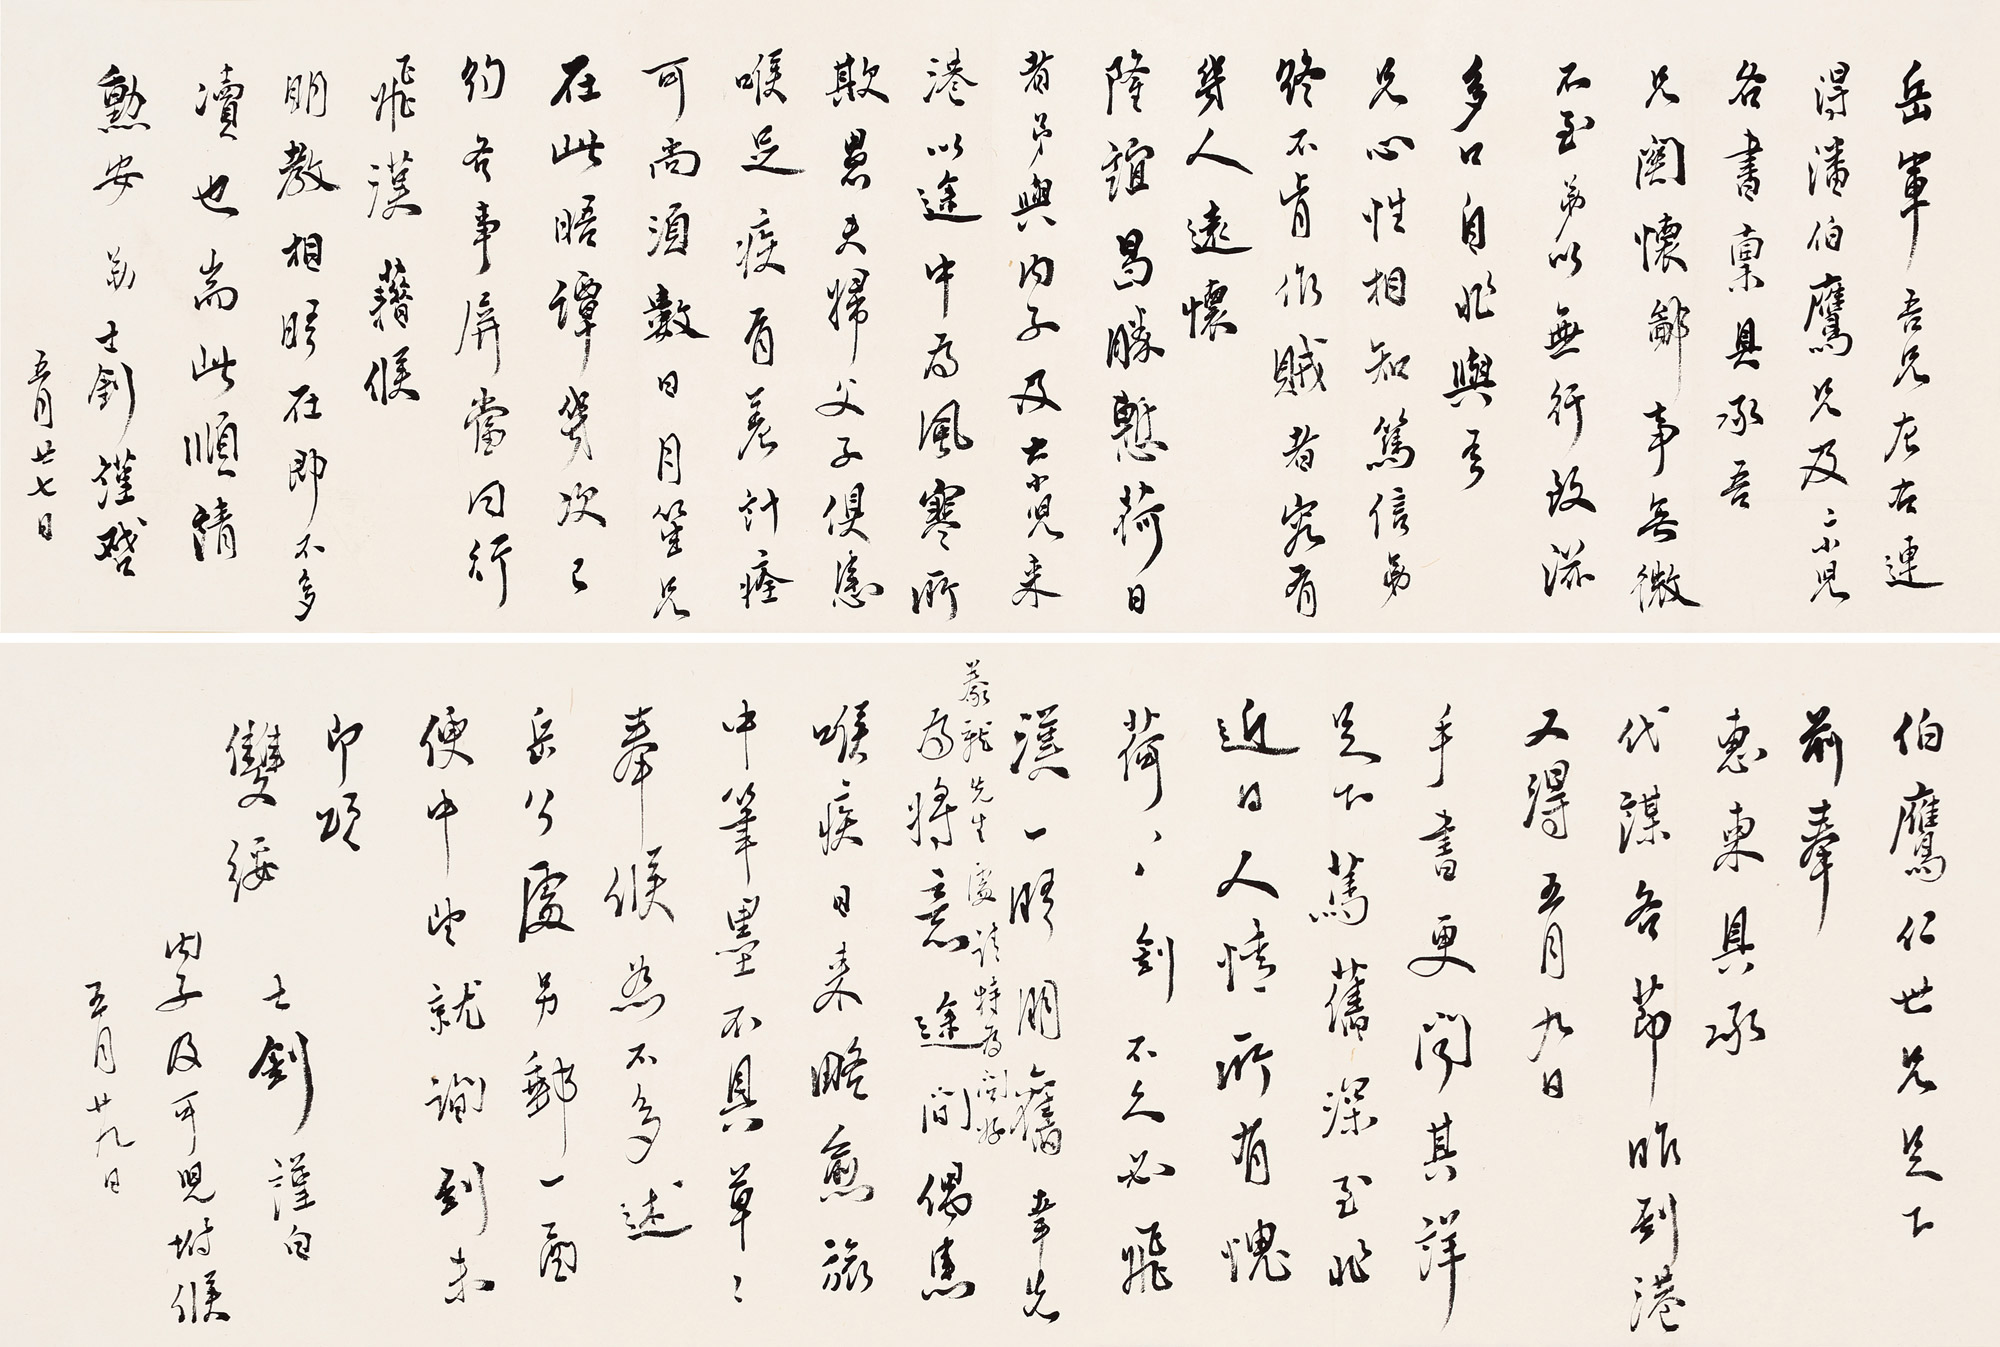 岳軍吾兄左右連
得潘伯鷹兄及二小兒
各書稟具承吾
兄關懷鄙事無微
不至弟以無行致滋
多口自非與吾
兄心性相知篤信弟
終不肯作賊者寧有
幾人遠懷
隆誼曷勝慙荷日
者弟與內子及大小兒来
港以途中為風寒所
欺愚夫婦父子俱患
喉足疾有差計痊
可尚須數日月笙兄
在此晤譚幾次已
約各事屏當同行
飛漢藉候
明教相晤在即不多
瀆也耑此順請
勳安 弟士釗謹啓
五月廿七日
伯鷹仁世兄足下
前奉
惠柬具承
代謀各節昨到港
又得五月九日
手書更聞其詳
足下篤舊深至非
近日人情所有愧
荷荷釗不久必飛
漢一晤朋舊幸先
為將意途間偶患
慕龍先生處請特為問好
喉疾日来略愈旅
中筆墨不具草草
奉候恕不多述
岳公處另郵一函
便中望就詢到未
即頌
雙綏 士釗謹白
內子及可兒坿候
五月廿九日